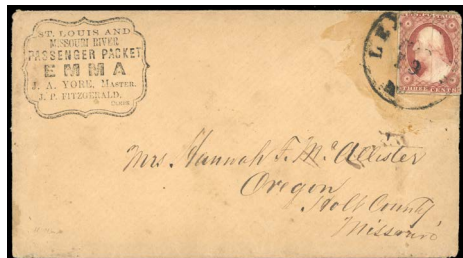 ST. LOUIS AND
MISSOURI RIVER
PASSENGER PACKET
EMMA
J. A. YORE, MASTER.
J. P. FITZGERALD,
LEX
THREE CENTS
Mrs. Hannah F. McAllister
Oregon
Holt County
Missouri